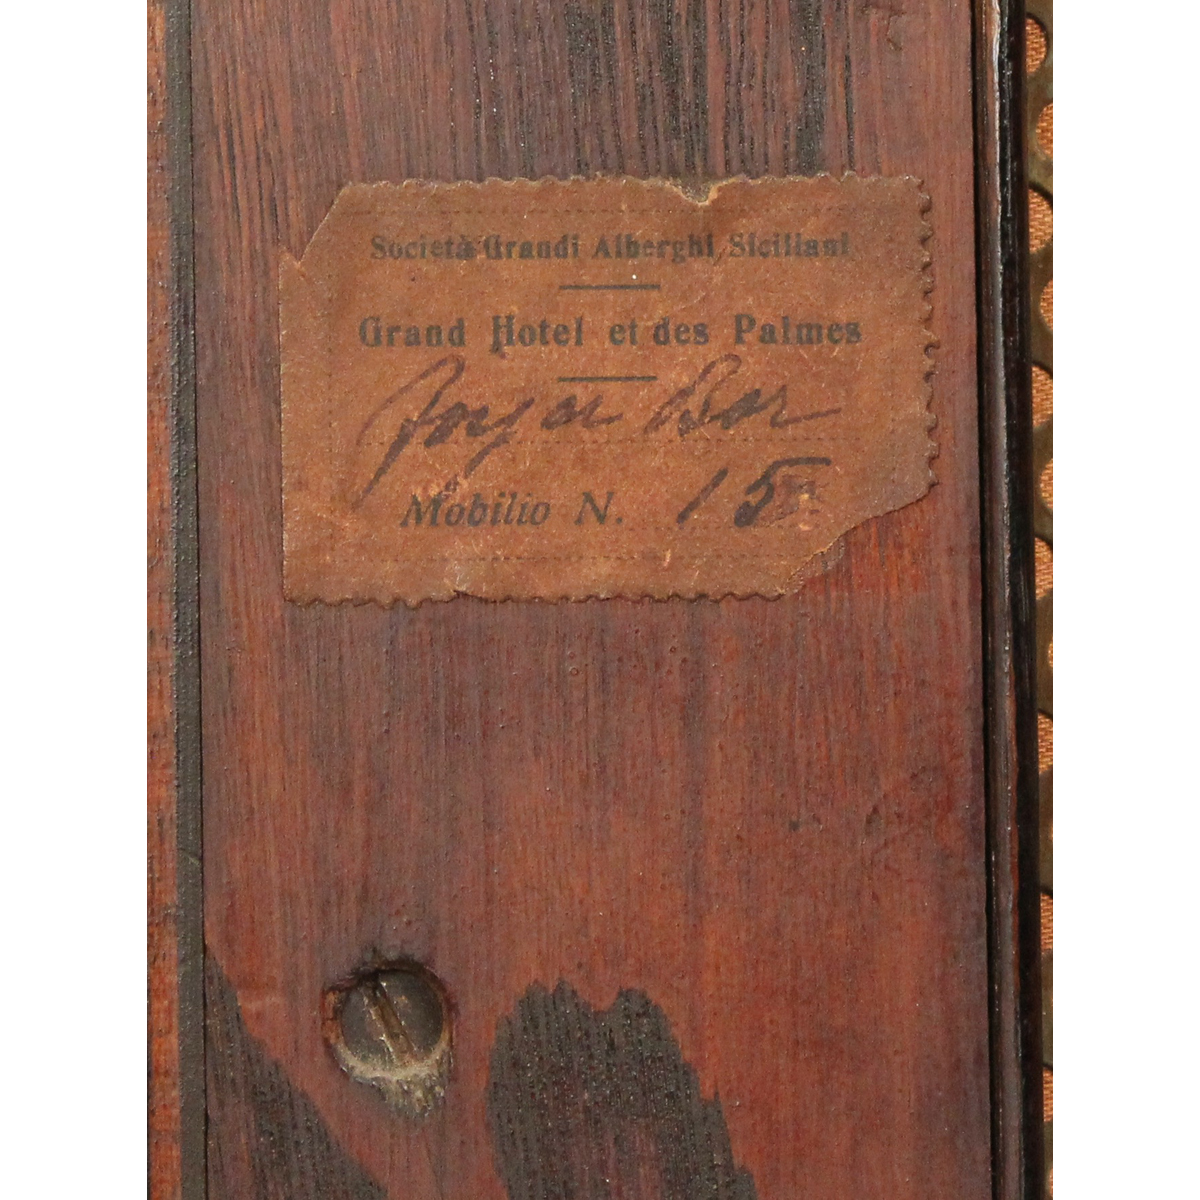 Società Grandi Alberghi Siciliani
Grand Hotel et des Palmes
Bar
Mobilio N. 15